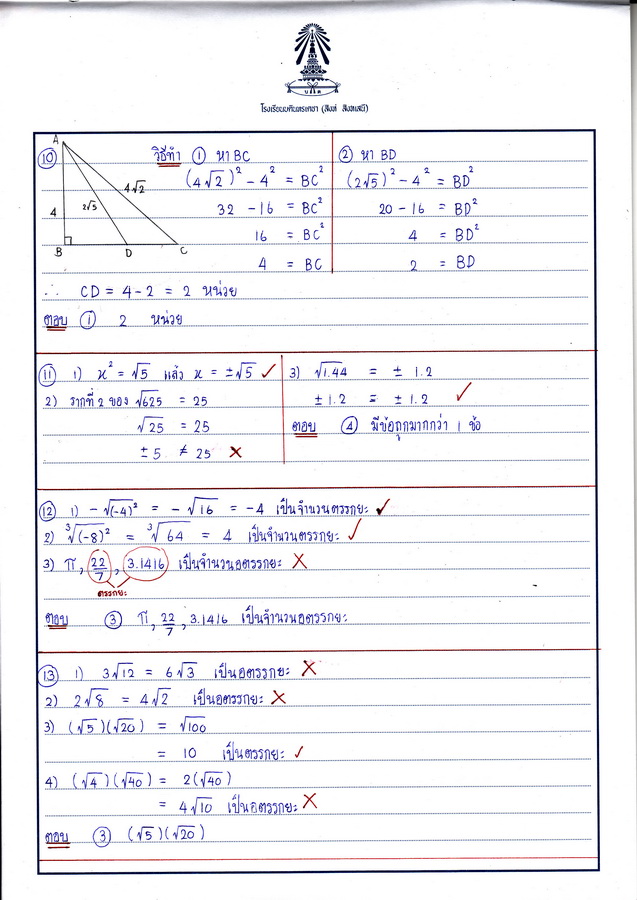 โรงเรียนบดินทรเดชา (สิงห์ สิงหเสนี)
10 วิธีทำ ① หา BC
(4√2)² - 4² = BC²
32 - 16 = BC²
16 = BC²
4 = BC
A
4
4√2
2√5
B D C
② หา BD
(2√5)² - 4² = BD²
20 - 16 = BD²
4 = BD²
2 = BD
∴ CD = 4 - 2 = 2 หน่วย
ตอบ ① 2 หน่วย
11 1) x² = √5 แล้ว x = ±√5 ✓
2) รากที่ 2 ของ √625 = 25
√25 = 25
±5 ≠ 25 ✗
3) √1.44 = ± 1.2
± 1.2 = ± 1.2 ✓
ตอบ ④ มีข้อถูกมากกว่า 1 ข้อ
12 1) -√(-4)² = -√16 = -4 เป็นจำนวนตรรกยะ ✓
2) ³√(-8)² = ³√64 = 4 เป็นจำนวนตรรกยะ ✓
3) π, 22/7, 3.1416 เป็นจำนวนอตรรกยะ ✗
ตรรกยะ
ตอบ ③ π, 22/7, 3.1416 เป็นจำนวนอตรรกยะ
13 1) 3√12 = 6√3 เป็นอตรรกยะ ✗
2) 2√8 = 4√2 เป็นอตรรกยะ ✗
3) (√5)(√20) = √100
= 10 เป็นตรรกยะ ✓
4) (√4)(√40) = 2(√40)
= 4√10 เป็นอตรรกยะ ✗
ตอบ ③ (√5)(√20)